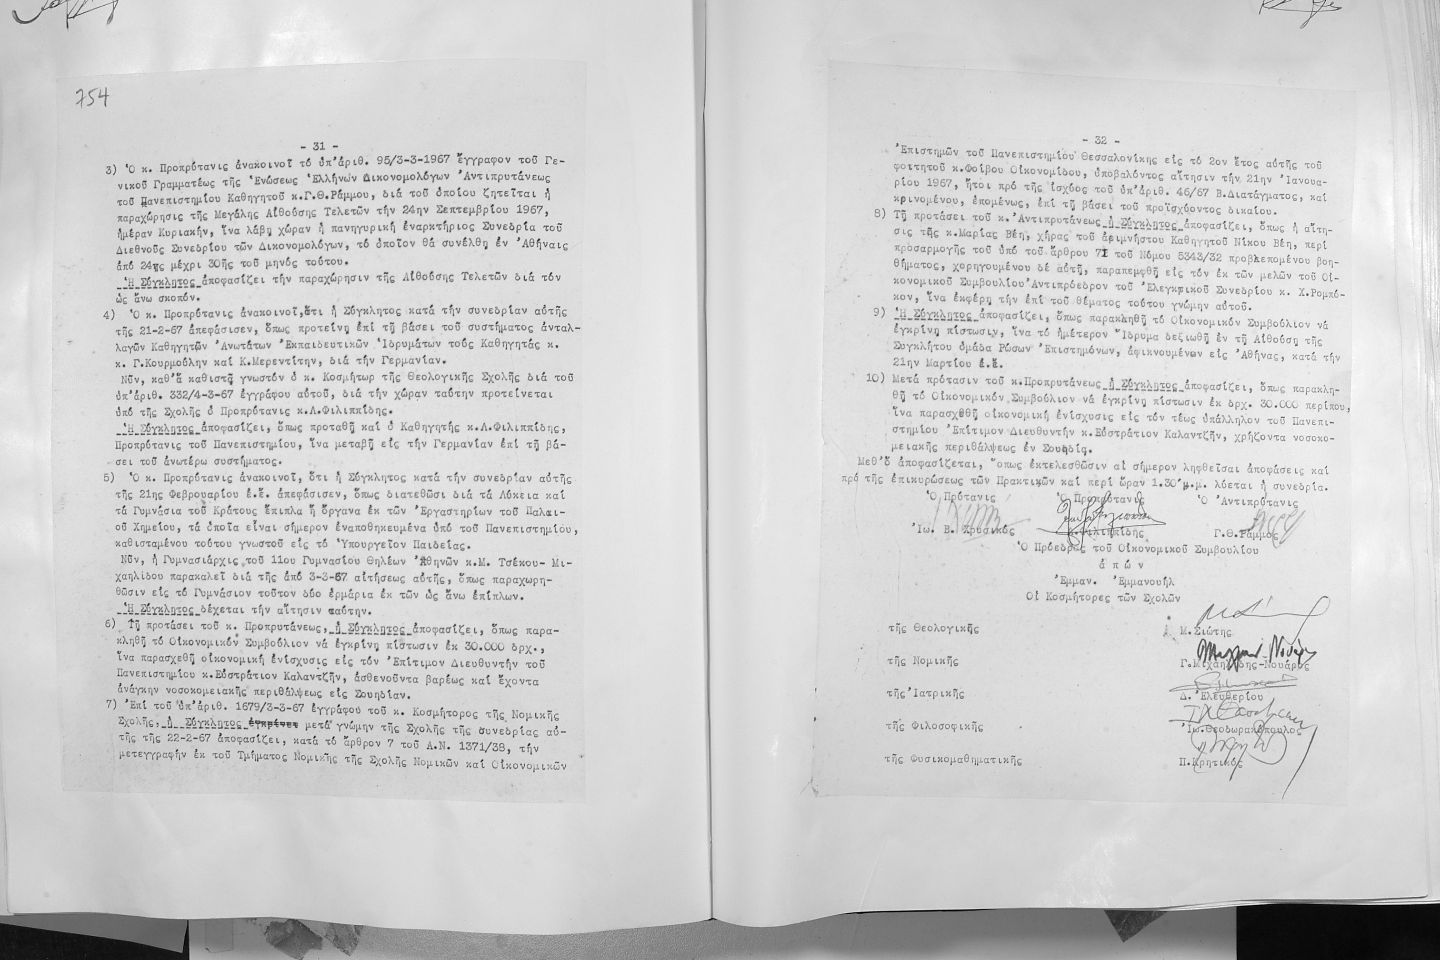 754
- 31 -
3) Ὁ κ. Προπρύτανις ἀνακοινοῖ τό ὑπ'ἀριθ. 95/3-3-1967 ἔγγραφον τοῦ Γε-
νικοῦ Γραμματέως τῆς Ἑνώσεως Ἑλλήνων Δικονομολόγων Ἀντιπρυτάνεως
τοῦ Πανεπιστημίου Καθηγητοῦ κ.Γ.Θ.Ράμμου, διά τοῦ ὁποίου ζητεῖται ἡ
παραχώρησις τῆς Μεγάλης Αἰθούσης Τελετῶν τήν 24ην Σεπτεμβρίου 1967,
ἡμέραν Κυριακήν, ἵνα λάβῃ χώραν ἡ πανηγυρική ἐναρκτήριος Συνεδρία τοῦ
Διεθνοῦς Συνεδρίου τῶν Δικονομολόγων, τό ὁποῖον θά συνέλθῃ ἐν Ἀθήναις
ἀπό 24ης μέχρι 30ῆς τοῦ μηνός τούτου.
Ἡ Σύγκλητος ἀποφασίζει τήν παραχώρησιν τῆς Αἰθούσης Τελετῶν διά τόν
ὡς ἄνω σκοπόν.
4) Ὁ κ. Προπρύτανις ἀνακοινοῖ,ὅτι ἡ Σύγκλητος κατά τήν συνεδρίαν αὐτῆς
τῆς 21-2-67 ἀπεφάσισεν, ὅπως προτείνῃ ἐπί τῇ βάσει τοῦ συστήματος ἀνταλ-
λαγῶν Καθηγητῶν Ἀνωτάτων Ἐκπαιδευτικῶν Ἱδρυμάτων τούς Καθηγητάς κ.
κ. Γ.Κουρμούλην καί Κ.Μερεντίτην, διά τήν Γερμανίαν.
Νῦν, καθ'ἅ καθιστᾷ γνωστόν ὁ κ. Κοσμήτωρ τῆς Θεολογικῆς Σχολῆς διά τοῦ
ὑπ'ἀριθ. 332/4-3-67 ἐγγράφου αὐτοῦ, διά τήν χώραν ταύτην προτείνεται
ὑπό τῆς Σχολῆς ὁ Προπρύτανις κ.Λ.Φιλιππίδης.
Ἡ Σύγκλητος ἀποφασίζει, ὅπως προταθῇ καί ὁ Καθηγητής κ.Λ.Φιλιππίδης,
Προπρύτανις τοῦ Πανεπιστημίου, ἵνα μεταβῇ εἰς τήν Γερμανίαν ἐπί τῇ βά-
σει τοῦ ἀνωτέρω συστήματος.
5) Ὁ κ. Προπρύτανις ἀνακοινοῖ, ὅτι ἡ Σύγκλητος κατά τήν συνεδρίαν αὐτῆς
τῆς 21ης Φεβρουαρίου ἐ.ἔ. ἀπεφάσισεν, ὅπως διατεθῶσι διά τά Λύκεια καί
τά Γυμνάσια τοῦ Κράτους ἔπιπλα ἤ ὄργανα ἐκ τῶν Ἐργαστηρίων τοῦ Παλαι-
οῦ Χημείου, τά ὁποῖα εἶναι σήμερον ἐναποθηκευμένα ὑπό τοῦ Πανεπιστημίου,
καθισταμένου τούτου γνωστοῦ εἰς τό Ὑπουργεῖον Παιδείας.
Νῦν, ἡ Γυμνασιάρχις τοῦ 11ου Γυμνασίου Θηλέων Ἀθηνῶν κ.Μ. Τσέκου- Μι-
χαηλίδου παρακαλεῖ διά τῆς ἀπό 3-3-67 αἰτήσεως αὐτῆς, ὅπως παραχωρη-
θῶσιν εἰς τό Γυμνάσιον τοῦτον δύο ἑρμάρια ἐκ τῶν ὡς ἄνω ἐπίπλων.
Ἡ Σύγκλητος δέχεται τήν αἴτησιν ταύτην.
6) Τῇ προτάσει τοῦ κ. Προπρυτάνεως, ἡ Σύγκλητος ἀποφασίζει, ὅπως παρα-
κληθῇ τό Οἰκονομικόν Συμβούλιον νά ἐγκρίνῃ πίστωσιν ἐκ 30.000 δρχ.,
ἵνα παρασχεθῇ οἰκονομική ἐνίσχυσις εἰς τόν Ἐπίτιμον Διευθυντήν τοῦ
Πανεπιστημίου κ.Εὐστράτιον Καλαντζῆν, ἀσθενοῦντα βαρέως καί ἔχοντα
ἀνάγκην νοσοκομειακῆς περιθάλψεως εἰς Σουηδίαν.
7) Ἐπί τοῦ ὑπ'ἀριθ. 1679/3-3-67 ἐγγράφου τοῦ κ. Κοσμήτορος τῆς Νομικῆς
Σχολῆς, ἡ Σύγκλητος ἐγκρίνει μετά γνώμην τῆς Σχολῆς τῆς συνεδρίας αὐ-
τῆς τῆς 22-2-67 ἀποφασίζει, κατά τό ἄρθρον 7 τοῦ Α.Ν. 1371/38, τήν
μετεγγραφήν ἐκ τοῦ Τμήματος Νομικῆς τῆς Σχολῆς Νομικῶν καί Οἰκονομικῶν
- 32 -
Ἐπιστημῶν τοῦ Πανεπιστημίου Θεσσαλονίκης εἰς τό 2ον ἔτος αὐτῆς τοῦ
φοιτητοῦ κ.Φοίβου Οἰκονομίδου, ὑποβαλόντος αἴτησιν τήν 21ην Ἰανουα-
ρίου 1967, ἤτοι πρό τῆς ἰσχύος τοῦ ὑπ'ἀριθ. 46/67 Β.Διατάγματος, καί
κρινομένου, ἑπομένως, ἐπί τῇ βάσει τοῦ προϊσχύοντος δικαίου.
8) Τῇ προτάσει τοῦ κ.Ἀντιπρυτάνεως ἡ Σύγκλητος ἀποφασίζει, ὅπως ἡ αἴτη-
σις τῆς κ.Μαρίας Βέη, χήρας τοῦ ἀειμνήστου Καθηγητοῦ Νίκου Βέη, περί
προσαρμογῆς τοῦ ὑπό τοῦ ἄρθρου 71 τοῦ Νόμου 5343/32 προβλεπομένου βοη-
θήματος, χορηγουμένου δέ αὐτῇ, παραπεμφθῇ εἰς τόν ἐκ τῶν μελῶν τοῦ Οἰ-
κονομικοῦ Συμβουλίου Ἀντιπρόεδρον τοῦ Ἐλεγκτικοῦ Συνεδρίου κ. Χ.Ρομπό-
κον, ἵνα ἐκφέρῃ τήν ἐπί τοῦ θέματος τούτου γνώμην αὐτοῦ.
9) Ἡ Σύγκλητος ἀποφασίζει, ὅπως παρακληθῇ τό Οἰκονομικόν Συμβούλιον νά
ἐγκρίνῃ πίστωσιν, ἵνα τό ἡμέτερον Ἵδρυμα δεξιωθῇ ἐν τῇ Αἰθούσῃ τῆς
Συγκλήτου ὁμάδα Ρώσων Ἐπιστημόνων, ἀφικνουμένων εἰς Ἀθήνας, κατά τήν
21ην Μαρτίου ἐ.ἔ.
10) Μετά πρότασιν τοῦ κ.Προπρυτάνεως ἡ Σύγκλητος ἀποφασίζει, ὅπως παρακλη-
θῇ τό Οἰκονομικόν Συμβούλιον νά ἐγκρίνῃ πίστωσιν ἐκ δρχ. 30.000 περίπου,
ἵνα παρασχεθῇ οἰκονομική ἐνίσχυσις εἰς τόν τέως ὑπάλληλον τοῦ Πανεπι-
στημίου Ἐπίτιμον Διευθυντήν κ.Εὐστράτιον Καλαντζῆν, χρήζοντα νοσοκο-
μειακῆς περιθάλψεως ἐν Σουηδίᾳ.
Μεθ'ὅ ἀποφασίζεται, ὅπως ἐκτελεσθῶσιν αἱ σήμερον ληφθεῖσαι ἀποφάσεις καί
πρό τῆς ἐπικυρώσεως τῶν Πρακτικῶν καί περί ὥραν 1.30 μ.μ. λύεται ἡ συνεδρία.
Ὁ Πρύτανις Ὁ Προπρύτανις Ὁ Ἀντιπρύτανις
Ἰω. Β. Χρυσικός Λ.Φιλιππίδης Γ.Θ.Ράμμος
Ὁ Πρόεδρος τοῦ Οἰκονομικοῦ Συμβουλίου
ἀ π ώ ν
Ἐμμαν. Ἐμμανουήλ
Οἱ Κοσμήτορες τῶν Σχολῶν
τῆς Θεολογικῆς Μ.Σιώτης
τῆς Νομικῆς Γ.Μιχαηλίδης-Νουάρος
τῆς Ἰατρικῆς Δ. Ἐλευθερίου
τῆς Φιλοσοφικῆς Ἰω.Θεοδωρακόπουλος
τῆς Φυσικομαθηματικῆς Π.Κρητικός